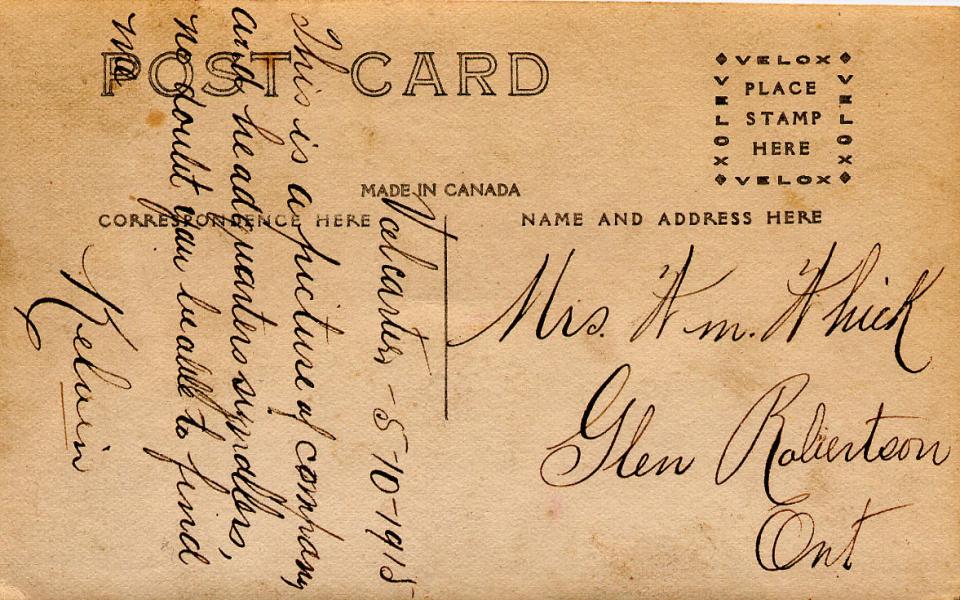 POST CARD
VELOX
VELOX PLACE VELOX
STAMP
HERE
VELOX
MADE IN CANADA
CORRESPONDENCE HERE
NAME AND ADDRESS HERE
Valcartier - 5-10-1915
This is a picture of company
and headquarters signallers,
no doubt you be able to find
me
Kelvin
Mrs. Wm. Whick
Glen Robertson
Ont